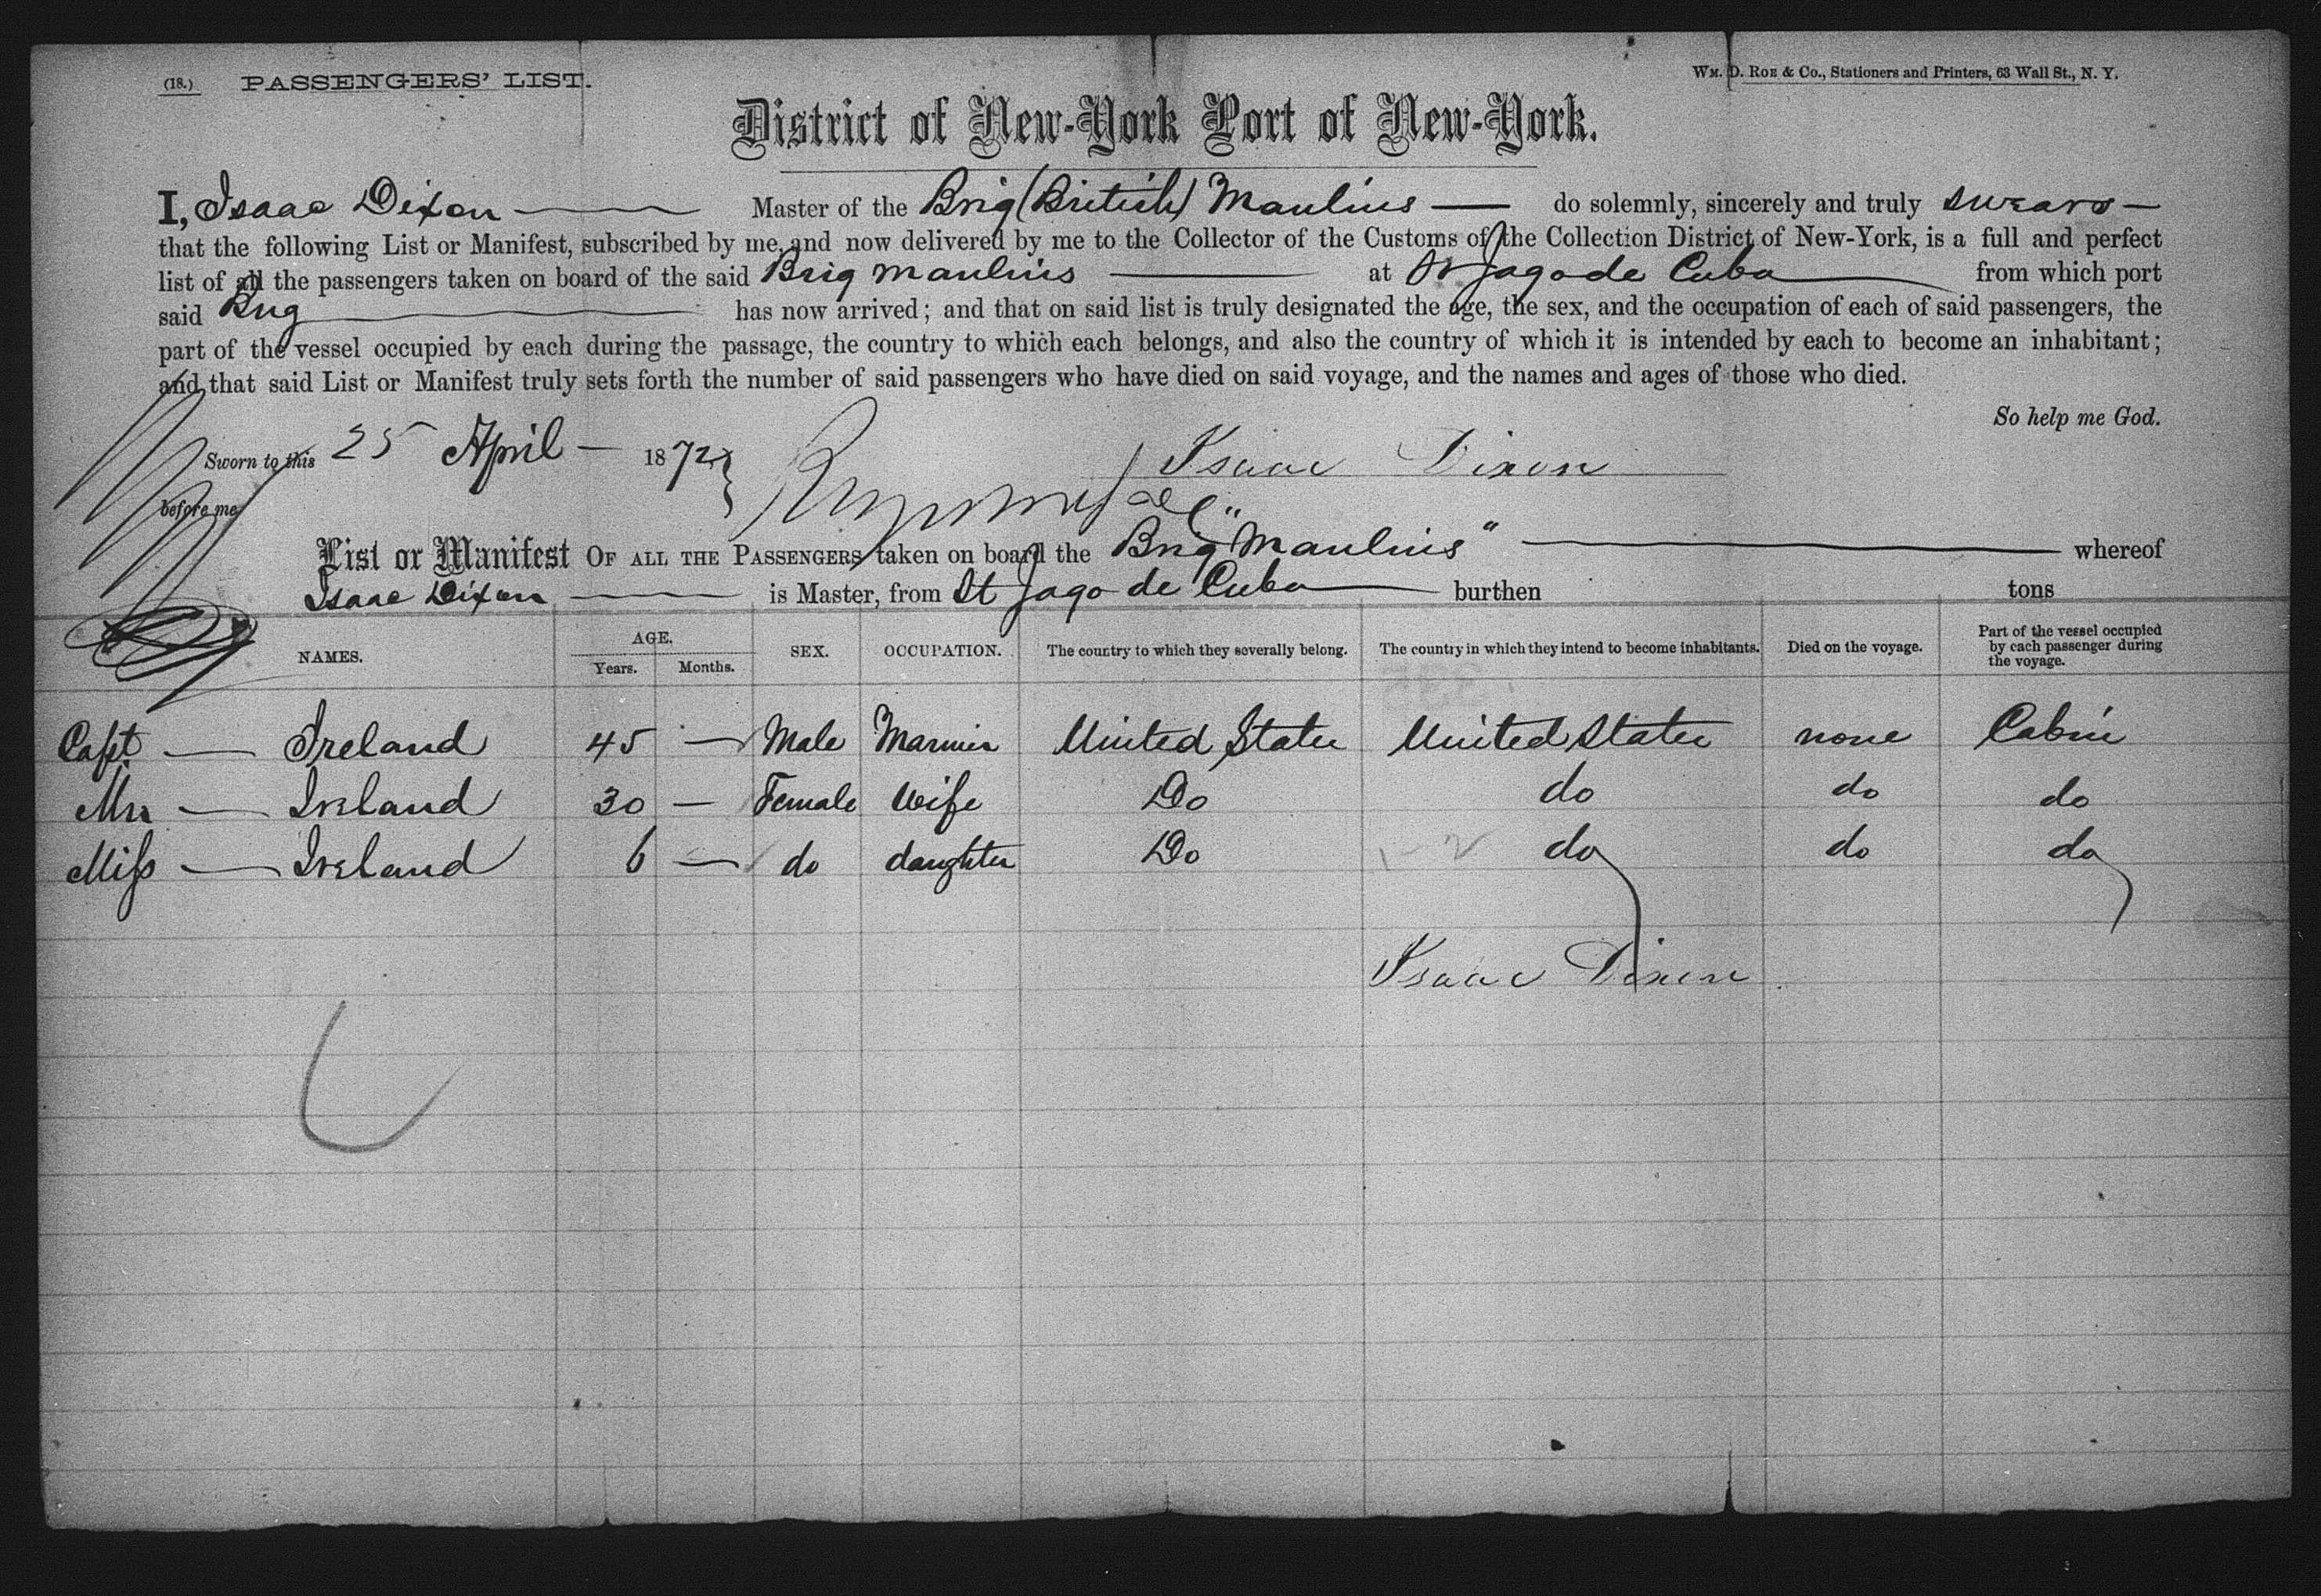 (18.) PASSENGERS' LIST. WM. D. ROE & Co., Stationers and Printers, 63 Wall St., N. Y.
District of New-York Port of New-York.
I, Isaac Dixon Master of the Brig (British) Maulius do solemnly, sincerely and truly swears
that the following List or Manifest, subscribed by me, and now delivered by me to the Collector of the Customs of the Collection District of New-York, is a full and perfect
list of all the passengers taken on board of the said Brig Maulius at St Jago de Cuba from which port
said Brig has now arrived; and that on said list is truly designated the age, the sex, and the occupation of each of said passengers, the
part of the vessel occupied by each during the passage, the country to which each belongs, and also the country of which it is intended by each to become an inhabitant;
and that said List or Manifest truly sets forth the number of said passengers who have died on said voyage, and the names and ages of those who died.
So help me God.
Sworn to this 25 April 1872 Isaac Dixon
before me
List or Manifest OF ALL THE PASSENGERS taken on board the Brig "Maulius" whereof
Isaac Dixon is Master, from St Jago de Cuba burthen tons
NAMES. AGE. Years. Months. SEX. OCCUPATION. The country to which they severally belong. The country in which they intend to become inhabitants. Died on the voyage. Part of the vessel occupied by each passenger during the voyage.
Capt. — Ireland 45 — Male Mariner United States United States none Cabin
Mrs — Ireland 30 — Female Wife Do do do do
Miss — Ireland 6 — do daughter Do do do do
Isaac Dixon